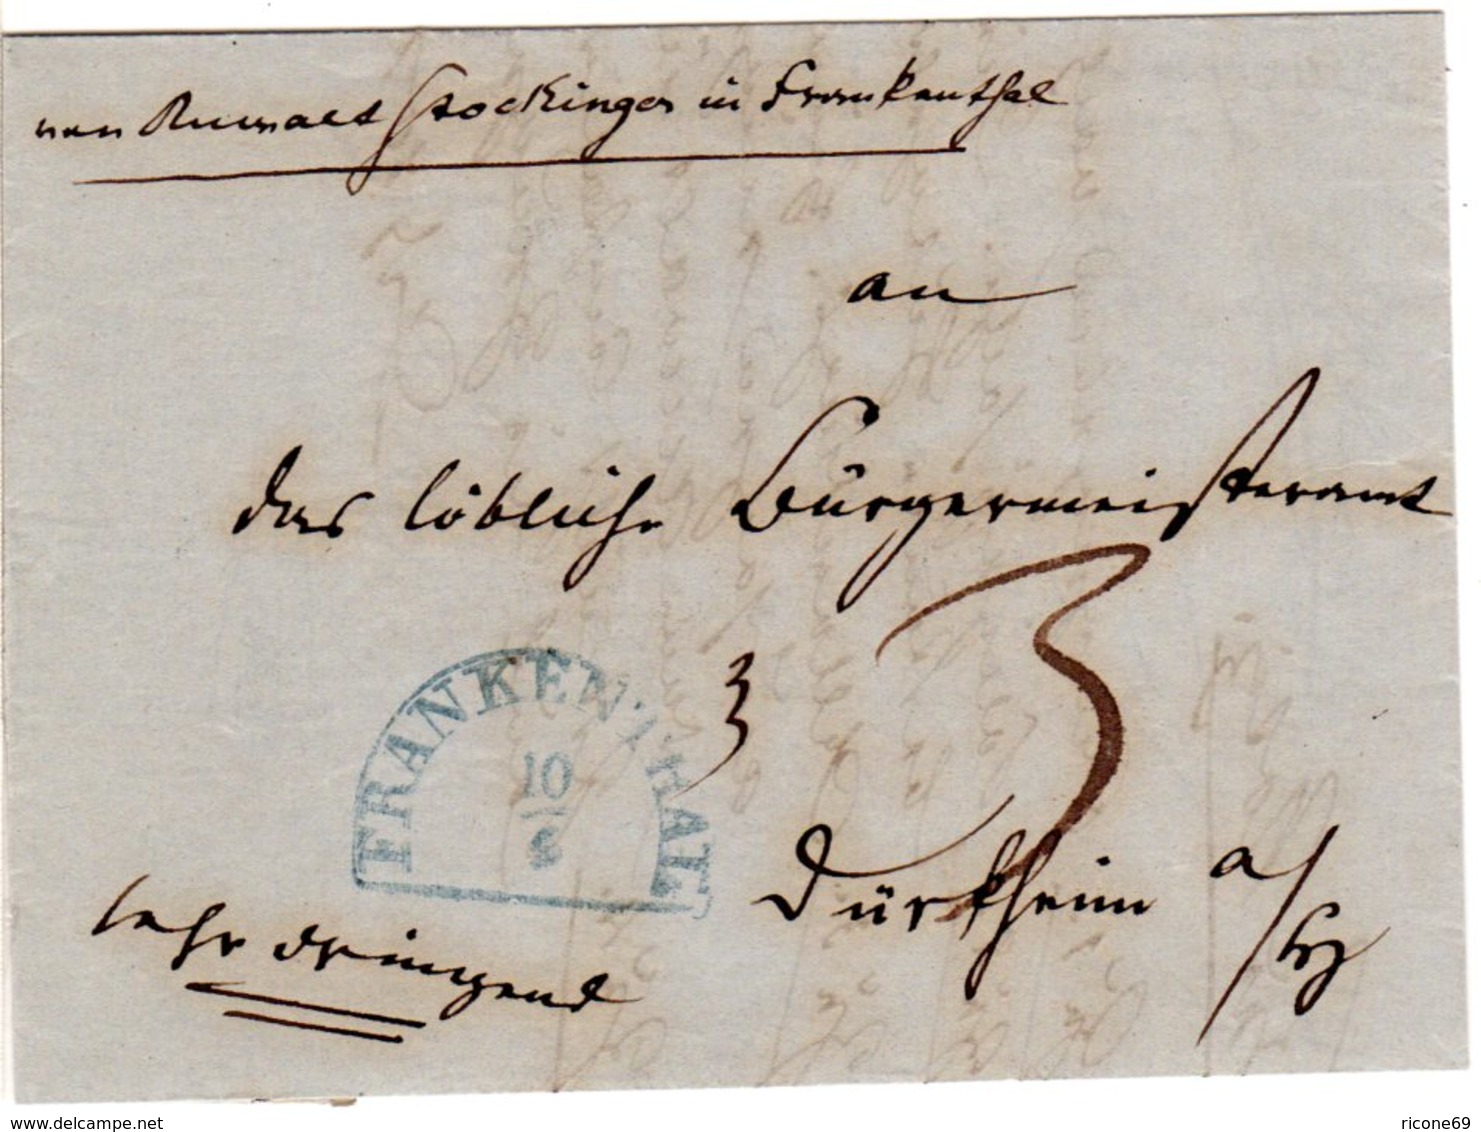 von Anwalt Stockinger in Frankenthal
an
das löbliche Bürgermeisteramt
3
3
FRANKENTHAL
10
8
Dürkheim a/H
sehr dringend
www.delcampe.net
ricone69